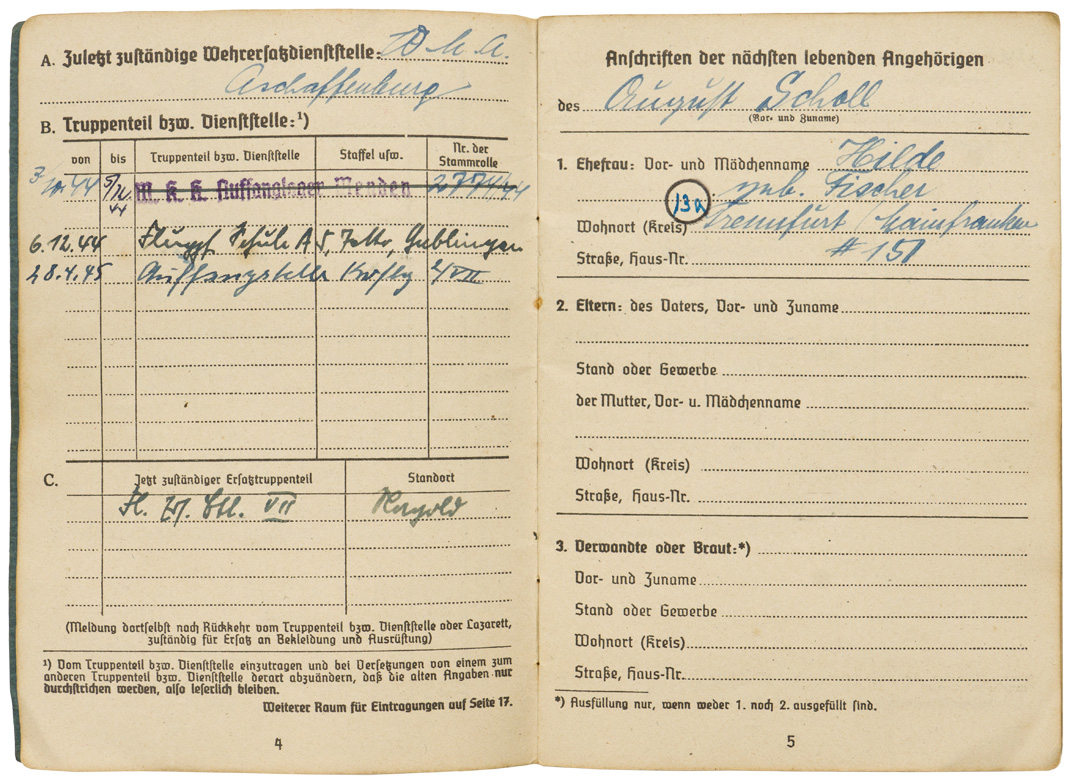 A. Zuletzt zuständige Wehrersatzdienststelle: W. M. A.
Aschaffenburg
B. Truppenteil bzw. Dienststelle:¹)
von bis Truppenteil bzw. Dienststelle Staffel usw. Nr. der Stammrolle
44 5/12. 44 M. K. K. Auffanglager Menden
6.12.44 Schule A
28.4.45 Auffangstelle VII
C. Jetzt zuständiger Ersatztruppenteil Standort
VII Nagold
(Meldung dortselbst nach Rückkehr vom Truppenteil bzw. Dienststelle oder Lazarett,
zuständig für Ersatz an Bekleidung und Ausrüstung)
¹) Vom Truppenteil bzw. Dienststelle einzutragen und bei Versetzungen von einem zum
anderen Truppenteil bzw. Dienststelle derart abzuändern, daß die alten Angaben nur
durchstrichen werden, also leserlich bleiben.
Weiterer Raum für Eintragungen auf Seite 17.
4
Anschriften der nächsten lebenden Angehörigen
des August Scholl
(Vor- und Zuname)
1. Ehefrau: Vor- und Mädchenname Hilde
geb. Fischer
13a
Wohnort (Kreis) Trennfurt / Mainfranken
Straße, Haus-Nr. # 151
2. Eltern: des Vaters, Vor- und Zuname
Stand oder Gewerbe
der Mutter, Vor- u. Mädchenname
Wohnort (Kreis)
Straße, Haus-Nr.
3. Verwandte oder Braut:*)
Vor- und Zuname
Stand oder Gewerbe
Wohnort (Kreis)
Straße, Haus-Nr.
*) Ausfüllung nur, wenn weder 1. noch 2. ausgefüllt sind.
5